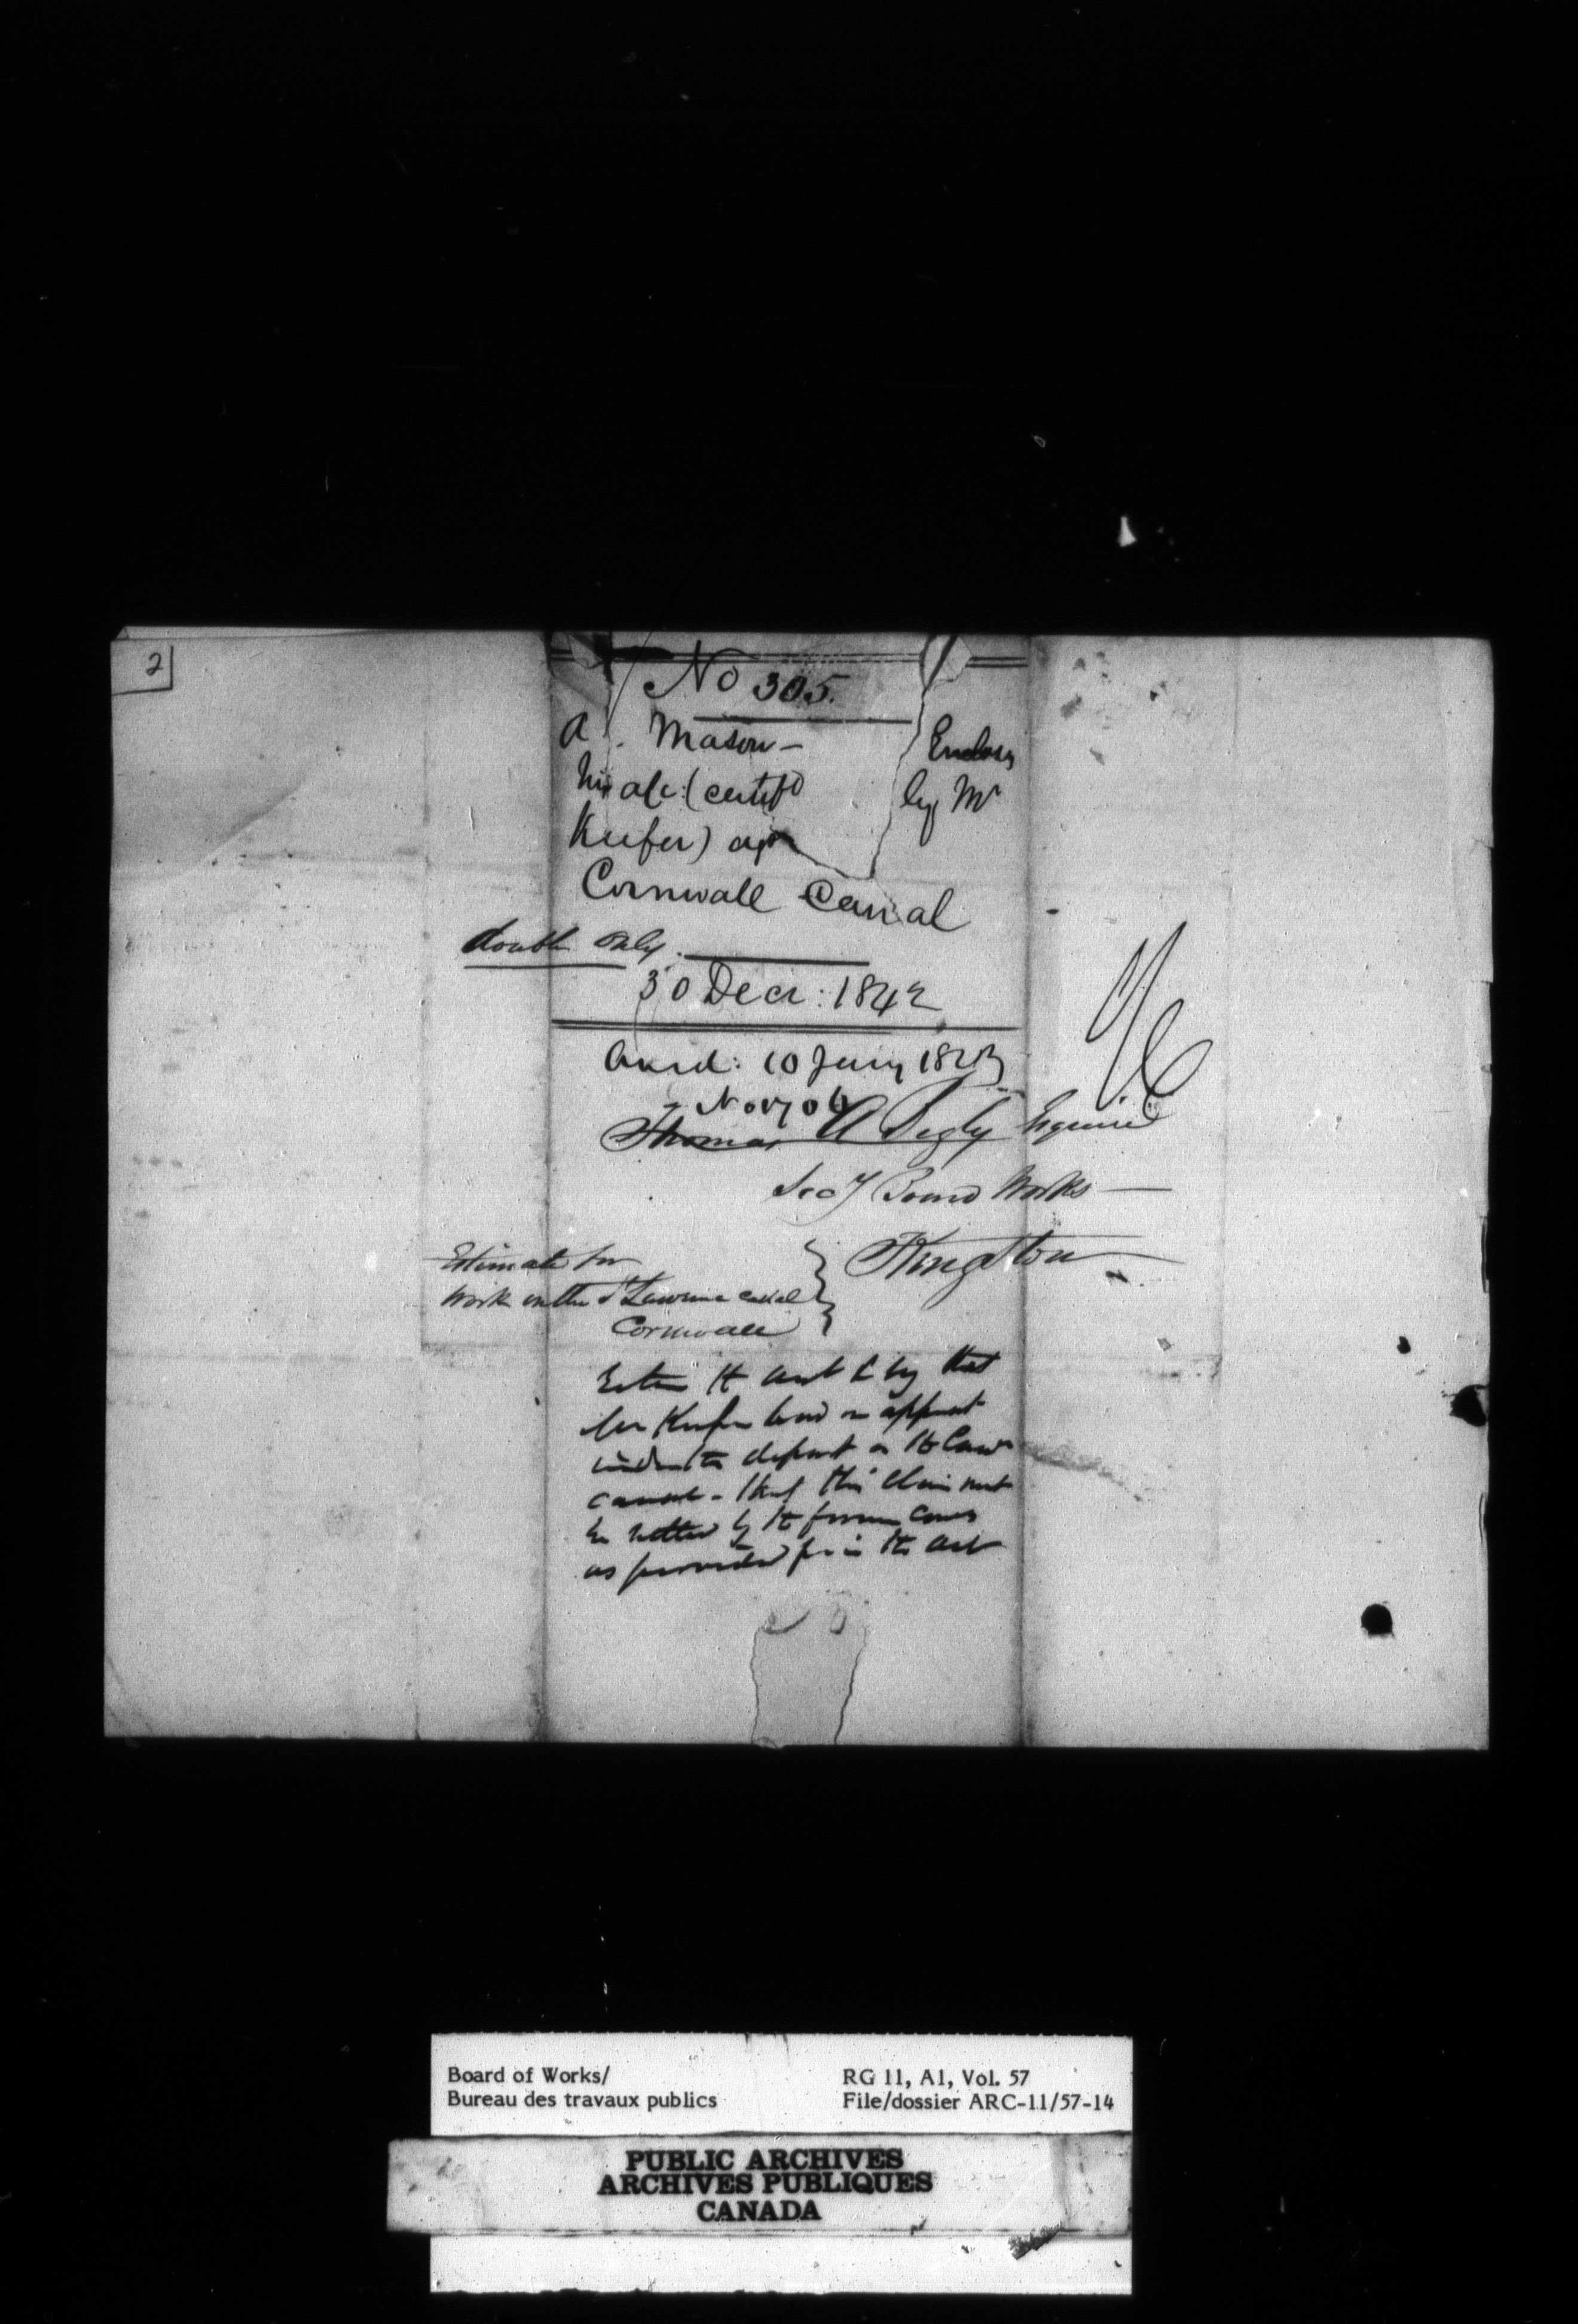 2
No 305.
A. Mason - Enclosd
his a/c: (certifd by Mr
Keefer) agn
Cornwall Canal
double only.
30 Decr: 1842
Ansd: 10 Jany 1843
No 1706
Thomas A Begly Esquire
Secy Board Works
Kingston
Estimate for
Work on the St Lawrence Canal
Cornwall
that
Mr Keefer
canal - that this claim must
be settled by the former
as provided for in the act
Board of Works/
Bureau des travaux publics
RG 11, A1, Vol. 57
File/dossier ARC-11/57-14
PUBLIC ARCHIVES
ARCHIVES PUBLIQUES
CANADA